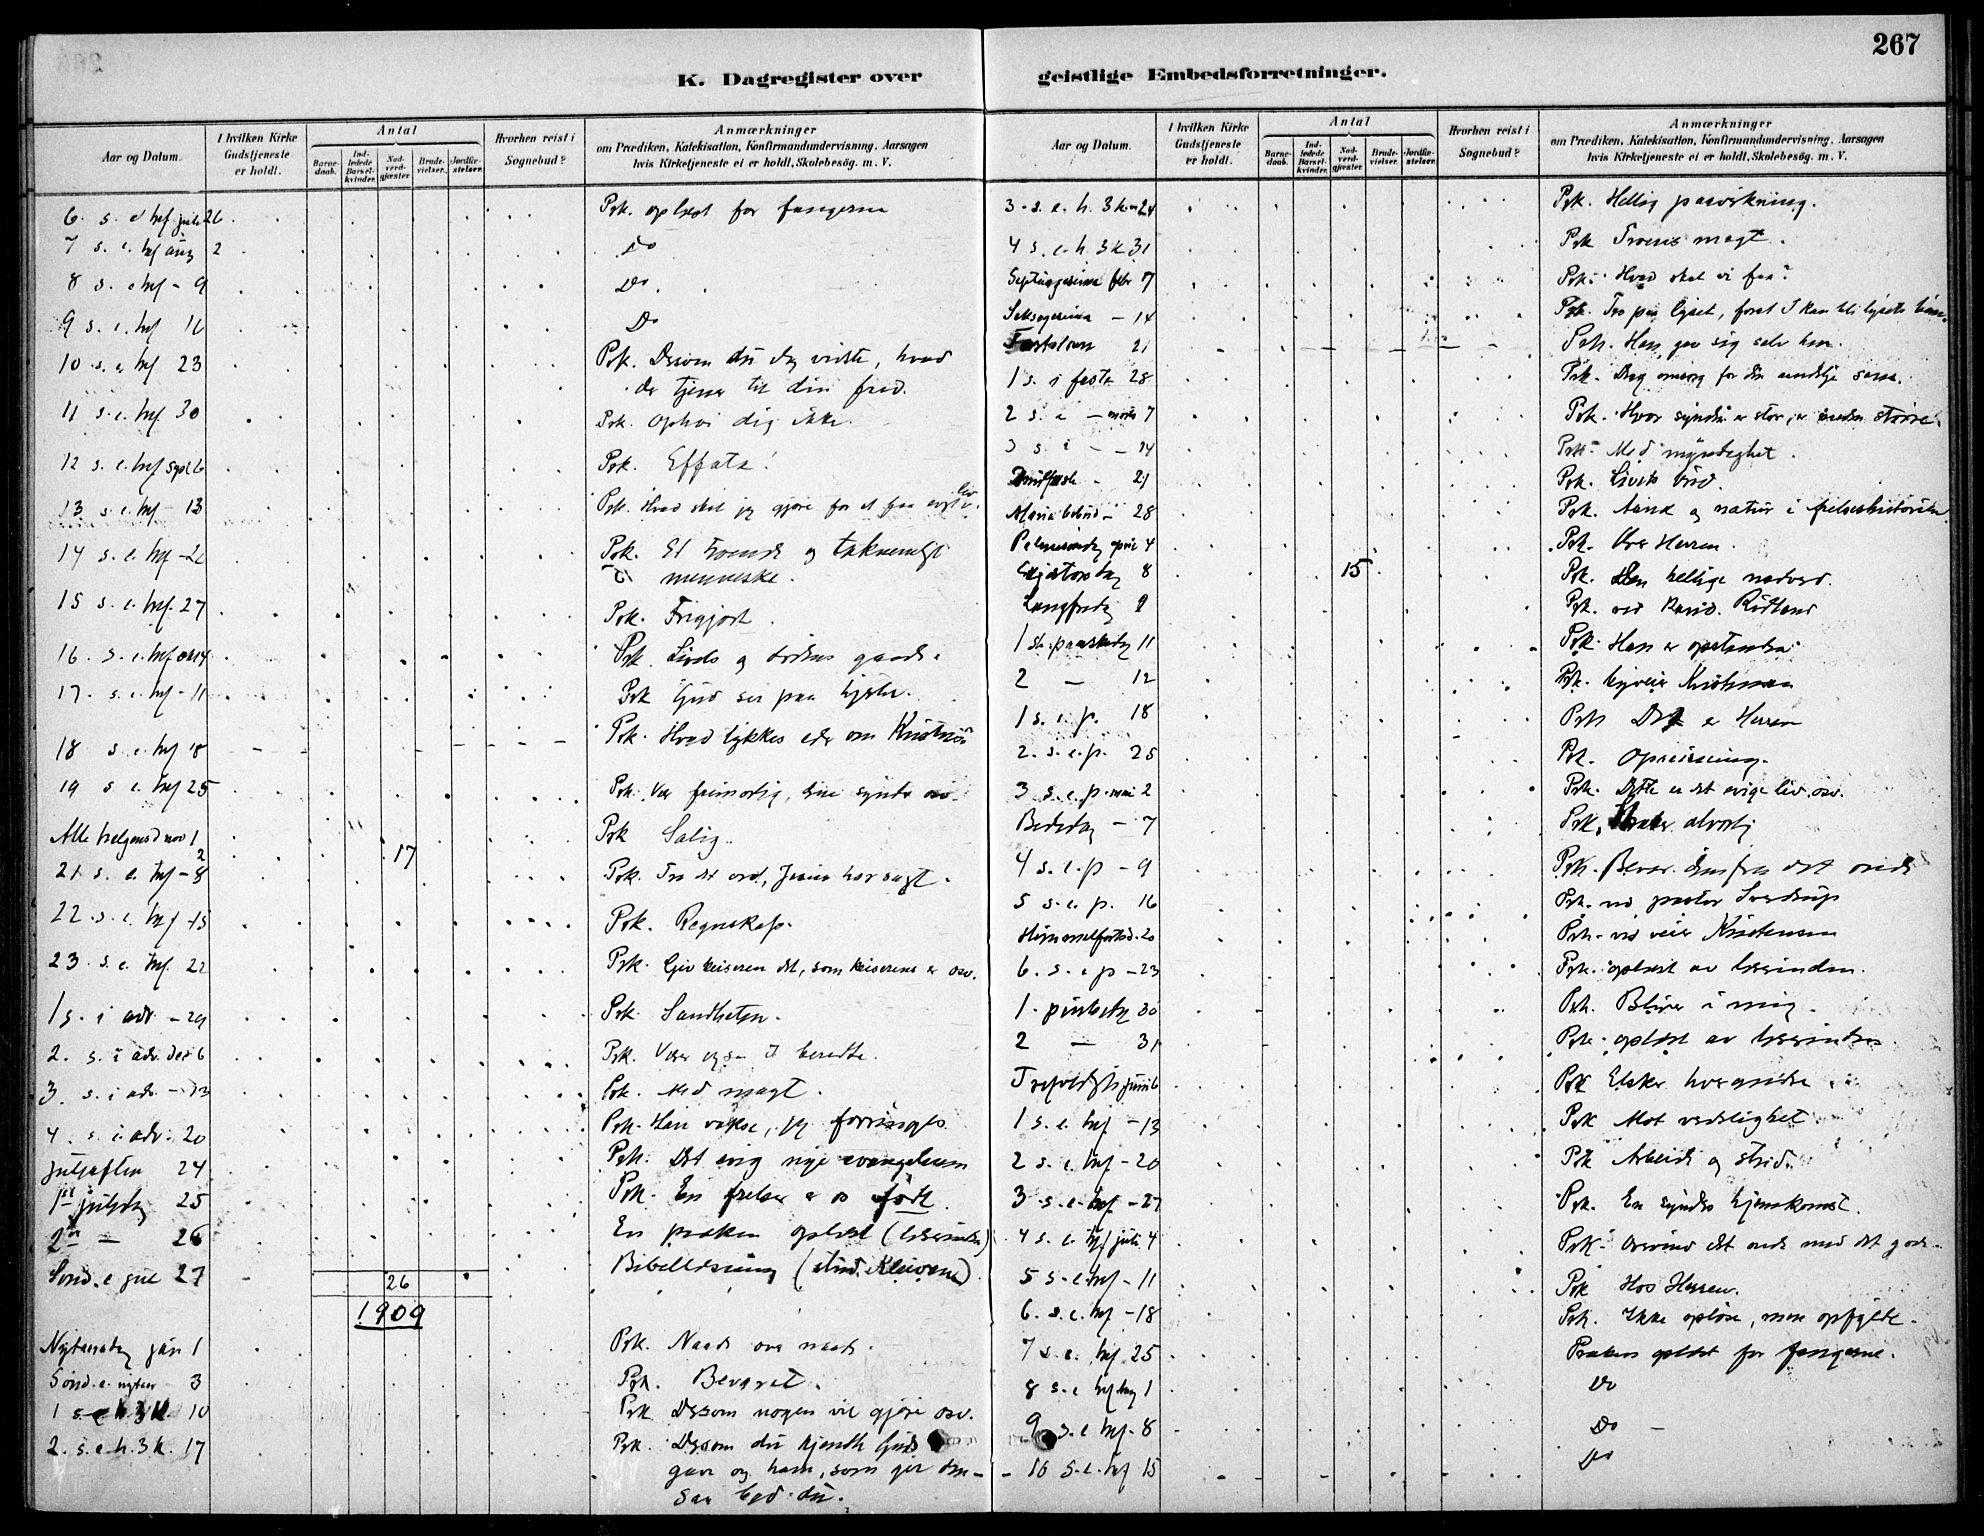 267
K. Dagregister over
geistlige Embedsforretninger.
Aar og Datum.
I hvilken Kirke Gudstjeneste er holdt.
Antal
Barnedaab.
Indledede Barselkvinder.
Nadverdgjæster
Brudevielser.
Jordfæstelser.
Hvorhen reist i Sognebud?
Anmærkninger
om Prædiken, Katekisation, Konfirmandundervisning, Aarsagen
hvis Kirketjeneste ei er holdt, Skolebesög. m. V.
6. s. e hf. juli 26 Prk. oplæst for fangerne
7 s. e. hf aug 2 Do
8 s. e hf - 9 Do.
9 s. e. hf 16 Do
10 s. e hf 23 Prk. Dersom du dog vidste, hvad
der tjener til din fred.
11 s. e. hf. 30 Prk. Ophøi dig ikke.
12 s. e. hf sept 6 Prk. Effata!
13 s. e. hf - 13 Prk. Hvad skal jeg gjøre for at faa evigt liv.
14 s. e. hf - 20 Prk. Et troende og taknemligt
menneske.
15 s. e. hf. 27 Prk. Frigjort.
16. s. e. hf okt 4 Prk. Livets og dødens gaade.
17. s. e. hf - 11 Prk Gud ser paa hjertet.
18 s. e. hf 18 Prk. Hvad tykkes eder om Kristus
19 s e. hf 25 Prk. Vær frimodig, dine synder osv.
Alle helgensd nov 1 Prk Salig.
2 17
21 s. e. hf - 8 Prk. Tro det ord, Jesus har sagt.
22. s. e. hf - 15 Prk. Regnskap.
23. s. e. hf. 22 Prk. Giv keiseren det, som keiserens er osv.
1 s. i adv. - 29 Prk. Sandheten.
2. s. i adv. des 6 Prk. Vær ogsaa I beredte.
3. s. i adv. - 13 Prk. Med magt.
4. s. i. adv. 20 Prk. Han vokse, jeg forringes.
Juleaften 24 Prk. Det evig nye evangelium
1ste juledag 25 Prk. En frelser er os født.
2en - 26 En præken oplæst (lærerinden)
Sønd. e jul 27 26 Bibellæsning (stud. Kleivene)
1909
Nytaarsdag jan 1 Prk. Naade over naade.
Sønd. e. nytaar 3 Prk. Bevaret.
1 s. e h. 3 k. 10 Prk Dersom nogen vil gjøre osv.
2. s. e. h. 3 k. 17 Prk. Dersom du kjendte Guds
gave og ham, som gir den -
saa bad du.
Aar og Datum.
I hvilken Kirke Gudstjeneste er holdt.
Antal
Barnedaab.
Indledede Barselkvinder.
Nadverdgjæster
Brudevielser.
Jordfæstelser.
Hvorhen reist i Sognebud?
Anmærkninger
om Prædiken, Katekisation, Konfirmandundervisning, Aarsagen
hvis Kirketjeneste ei er holdt, Skolebesög. m. V.
3. s. e. h. 3 k. 24 Prk. Hellig paavirkning.
4 s. e. h. 3 k 31 Prk Troens magt.
Septuagesima febr 7 Prk. Hvad skal vi faa?
Seksagesima - 14 Prk. Tro paa lyset, forat I kan bli lysets børn.
Fastelavn 21 Prk. Han gav sig selv hen.
1 s. i faste 28 Prk. Drag omsorg for din aandelige sans.
2 s. i - mars 7 Prk. Hvor synden er stor, er naaden større.
3 s. i - - 14 Prk. Med myndighet.
Midfaste - 21 Prk. Livets brød.
Maria bebud - 28 Prk. Aand og natur i frelseshistorien.
Palmesøndag april 4 Prk. Vor Herren.
Skjærtorsdag 8 15 Prk. Den hellige nadverd.
Langfredag 9 Prk. ved kand. Rødland
1ste paaskedag 11 Prk. Han er opstanden.
2 - 12 Prk. Kristensen
1 s. e. p. 18 Prk Det er Herren
2. s. e. p. 25 Prk. Opreisning.
3 s. e. p. mai 2 Prk. Dette er det evige liv, osv.
Bededag - 7 Prk. alvorlig
4 s. e. p - 9 Prk. Bevar dem fra det onde
5 s. e. p. 16 Prk. ved pastor Sverdrup
Himmelfartsd. 20 Prk. ved Kristensen
6. s. e p - 23 Prk. oplæst av lærerinden.
1. pinsedag 30 Prk. Bliver i mig.
2 - 31 Prk. oplæst av lærerinden
Trefoldigh juni 6 Prk Elsker hverandre
1 s. e. hf - 13 Prk Mot verdslighet
2 s. e. hf - 20 Prk Arbeide og strid.
3 s. e. hof - 27 Prk. En synders hjemkomst.
4 s. e. hf juli 4 Prk. Overvind det onde med det gode.
5 s. e. hf - 11 Prk Hos Herren.
6. s. e. hf - 18 Prk. Ikke opløse, men opfylde.
7 s. e. hf. 25 Præken oplæst for fangerne.
8 s. e hf aug 1 Do
9 s. e hf. 8 Do
10 s. e. hf 15 Do